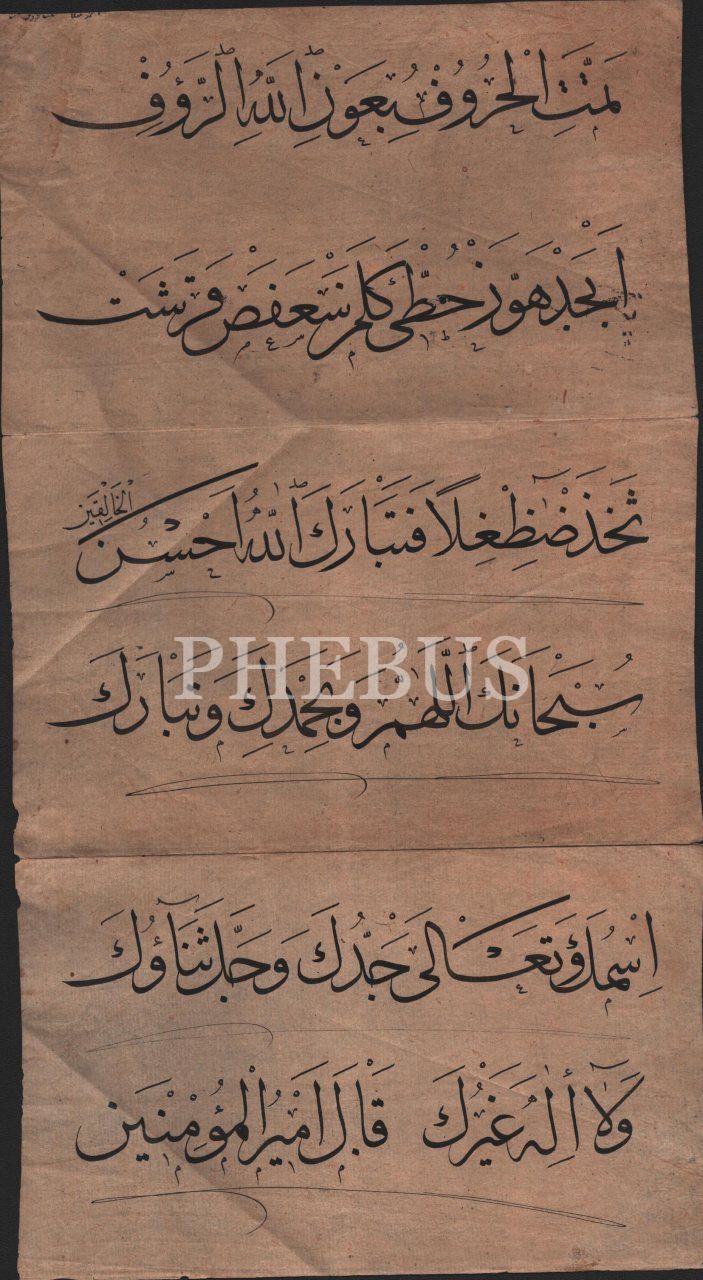 تَمَّتِ الْحُرُوفُ بِعَوْنِ اللهِ الرَّؤُفِ
اَبْجَدْ هَوَّزْ حُطِّى كَلَمَنْ سَعَفَصْ قَرَشَتْ
ثَخَذْ ضَظِغِلاً فَتَبَارَكَ اللهُ اَحْسَنُ
الْخَالِقِينَ
سُبْحَانَكَ اللّٰهُمَّ وَبِحَمْدِكَ وَتَبَارَكَ
PHEBUS
اِسْمُكَ وَتَعَالَى جَدُّكَ وَجَلَّ ثَنَآؤُكَ
وَلَآ اِلٰهَ غَيْرُكَ قَالَ اَمِيرُ الْمُؤْمِنِينَ